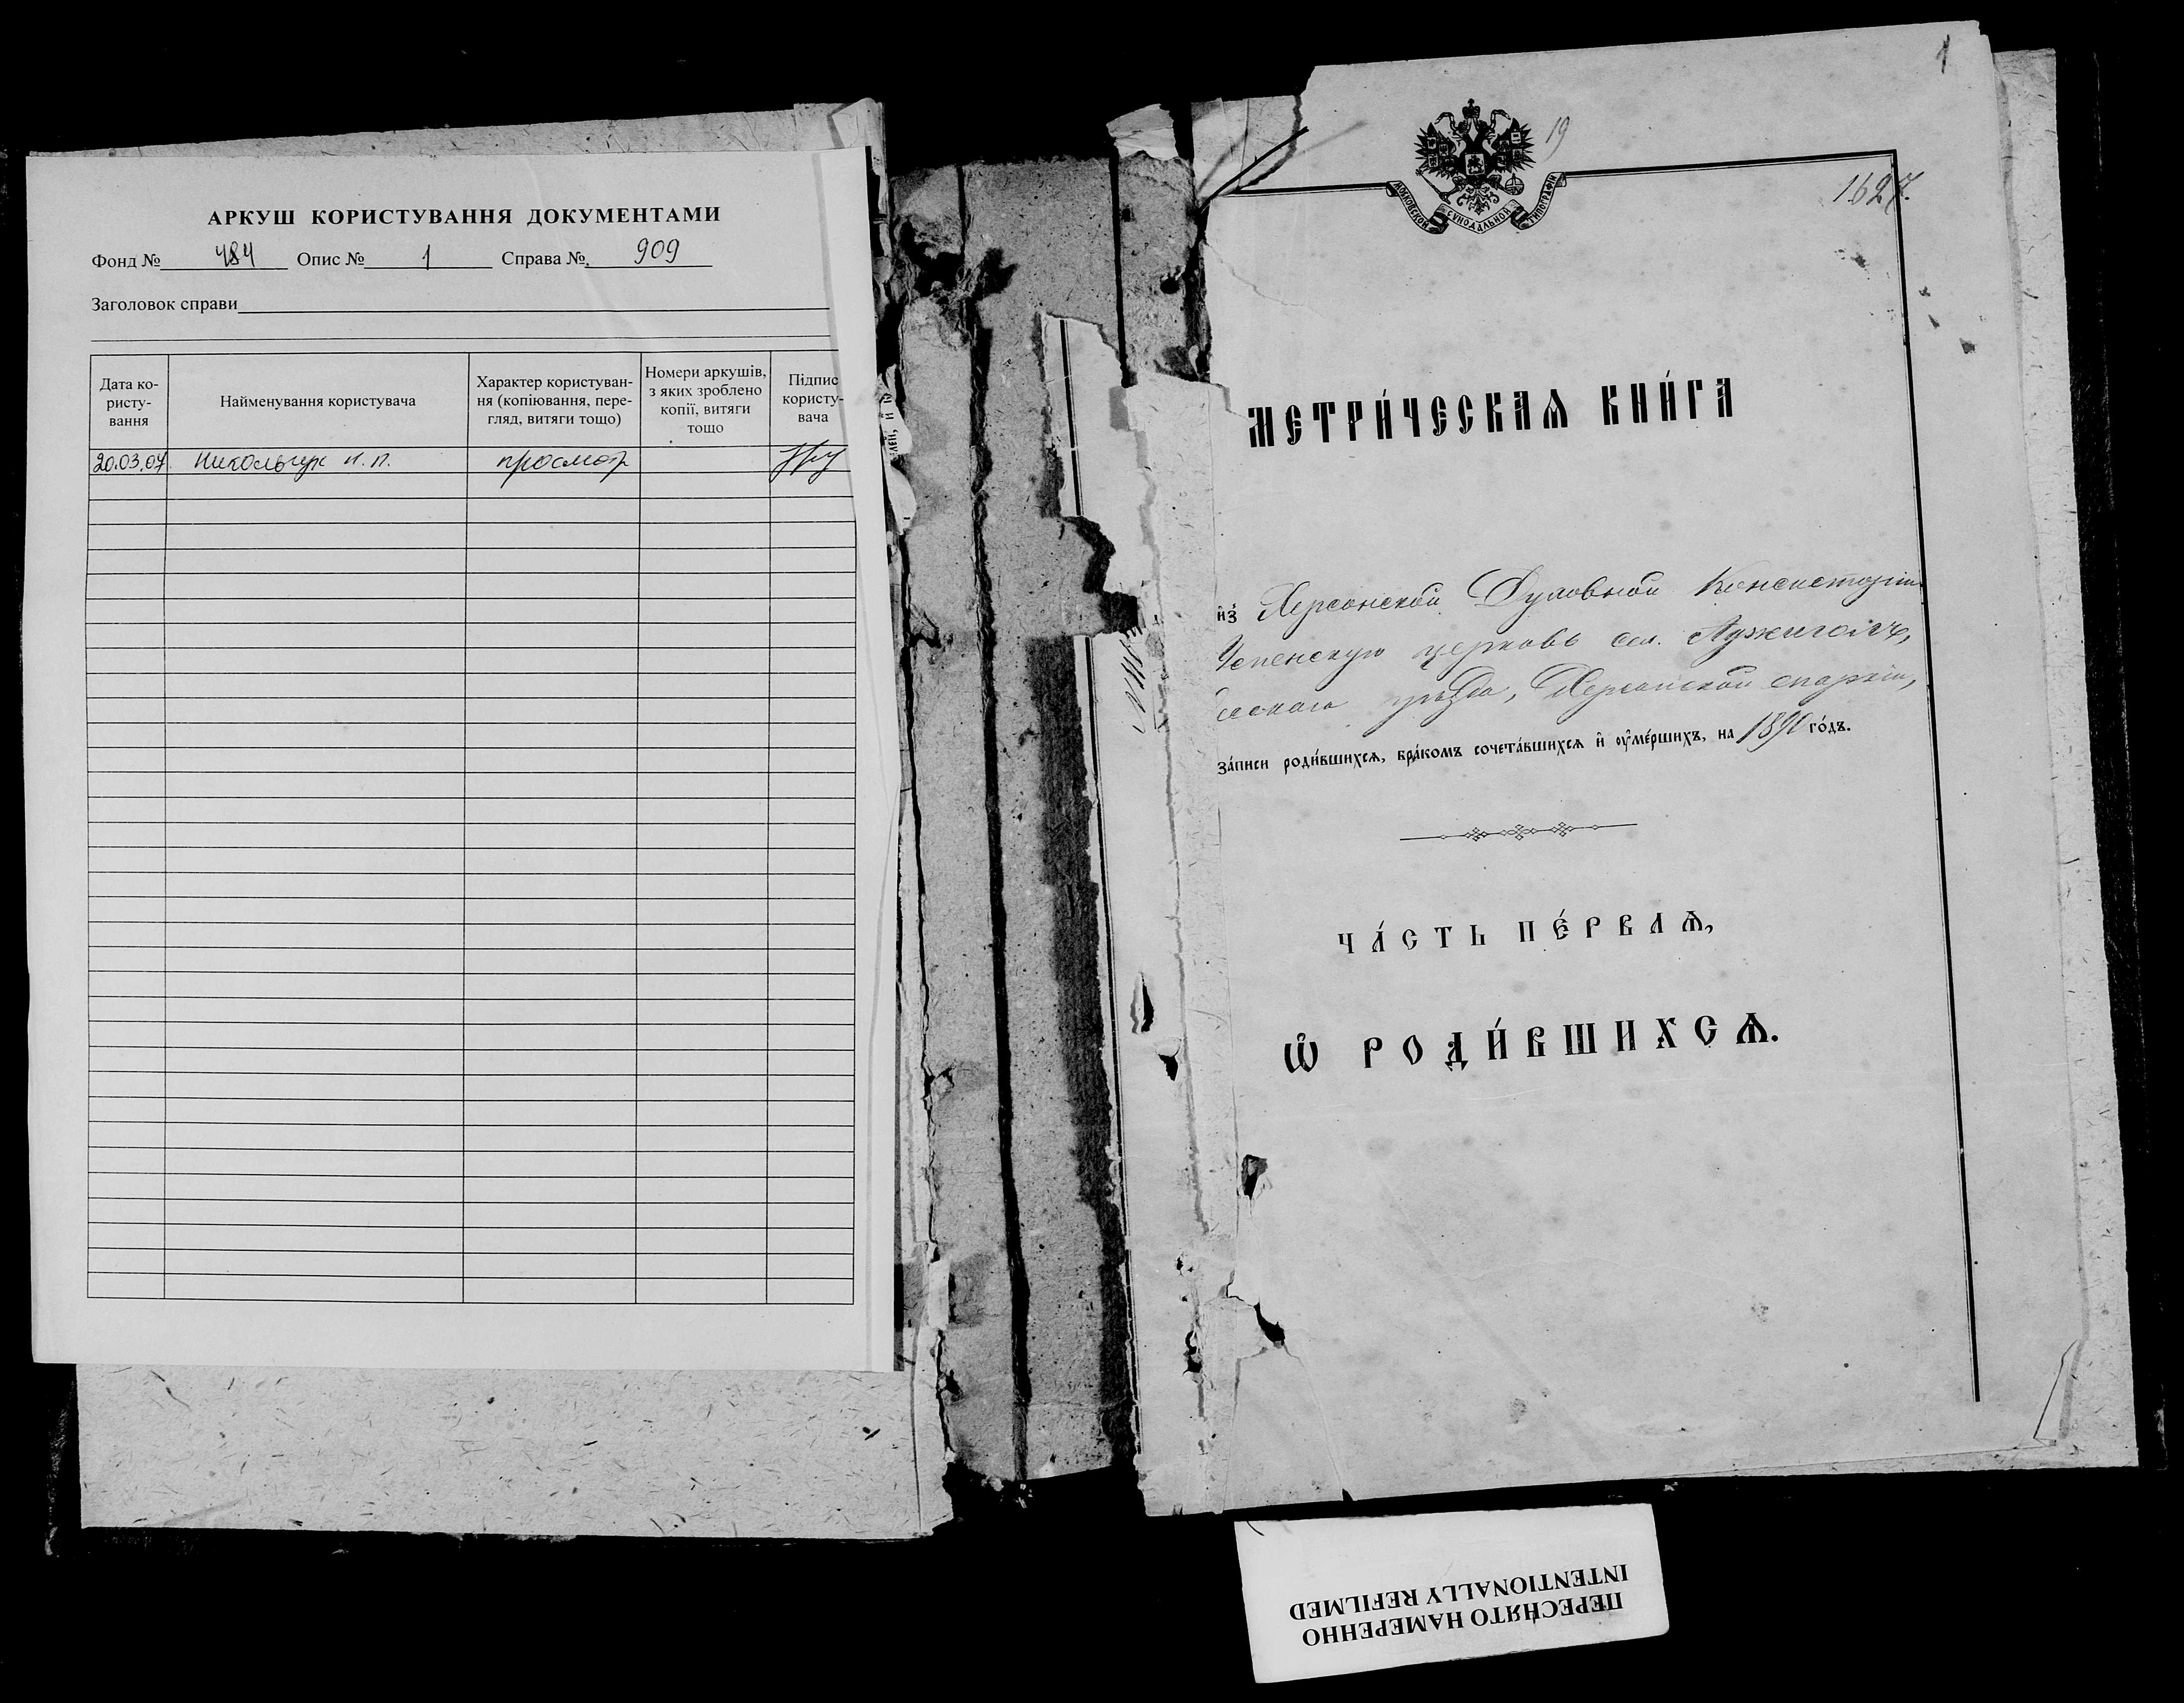 АРКУШ КОРИСТУВАННЯ ДОКУМЕНТАМИ
Фонд № 484 Опис № 1 Справа № 909
Заголовок справи
Дата ко-
ристу-
вання
Найменування користувача
Характер користуван-
ня (копіювання, пере-
гляд, витяги тощо)
Номери аркушів,
з яких зроблено
копії, витяги
тощо
Підпис
користу-
вача
20.03.07 Никольчук И. П. просмотр
1
19
1627.
МОСКОВСКОЙ СѴНОДАЛЬНОЙ ТИПОГРАФІИ
МЕТРИ́ЧЕСКАѦ КНИ́ГА
и҆зъ Херсонской Духовной Консисторіи
Успенскую церковь сел. Аджигола,
сскаго уѣзда, Херсонской епархіи,
за́писи роди́вшихсѧ, бра́комъ сочета́вшихсѧ и҆ ᲂу҆ме́ршихъ, на 1890 го́дъ.
ЧА́СТЬ ПЕ́РВАѦ,
Ѡ҆ РОДИ́ВШИХСѦ.
ПЕРЕСНЯТО НАМЕРЕННО
INTENTIONALLY REFILMED